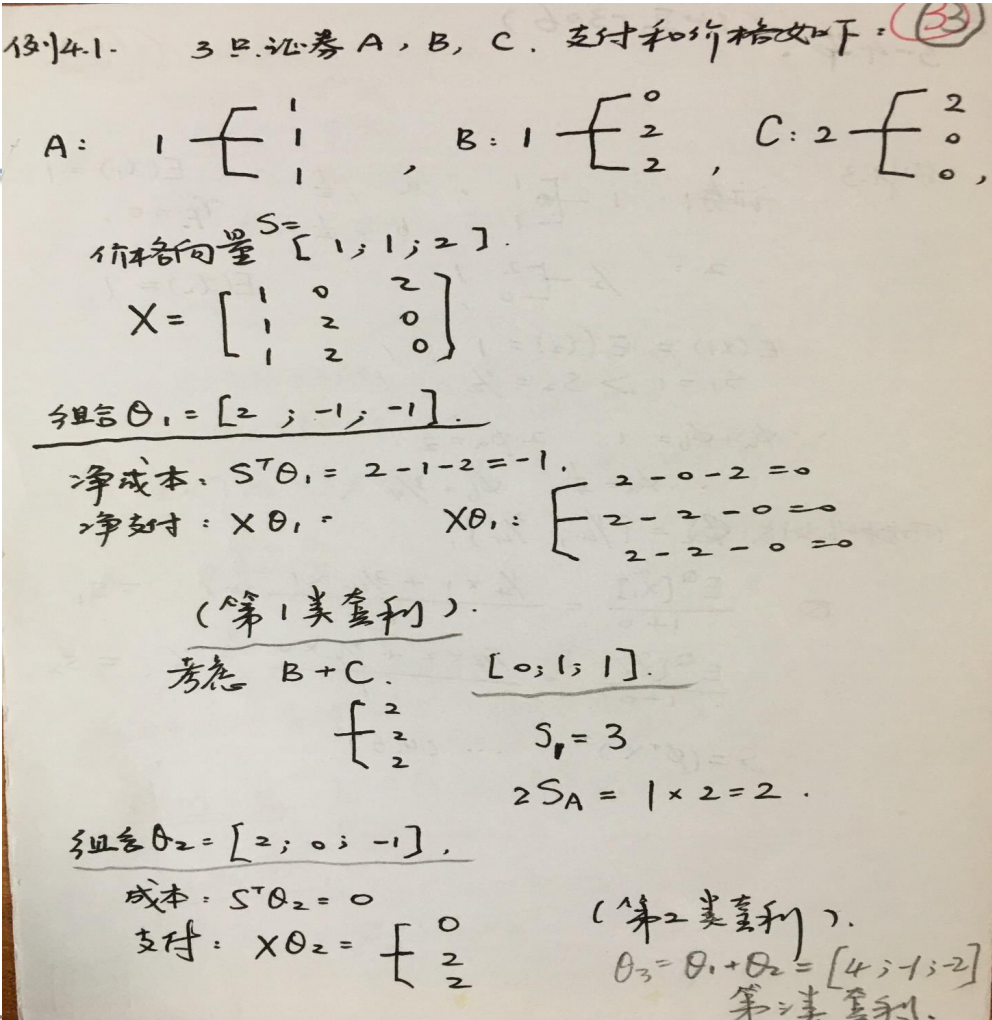 例4.1. 3只证券A,B,C. 支付和价格如下: 33
A: 1 1 1 1 , B: 1 0 2 2 , C: 2 2 0 0 ,
价格向量 S= [1;1;2].
X = [ 1 0 2
1 2 0
1 2 0 ]
组合θ₁ = [2 ; -1; -1].
净成本: SᵀθI₁ = 2-1-2=-1.
净支付: Xθ₁ = Xθ₁: 2-0-2=0
2-2-0=0
2-2-0=0
(第1类套利).
考虑 B+C. [0;1;1].
2
2
2
Sₚ = 3
2S_A = 1×2=2.
组合θ₂ = [2; 0; -1].
成本: Sᵀθ₂ = 0
支付: Xθ₂ = 0 2 2
(第2类套利).
θ₃=θ₁+θ₂=[4;-1;-2]
套利.